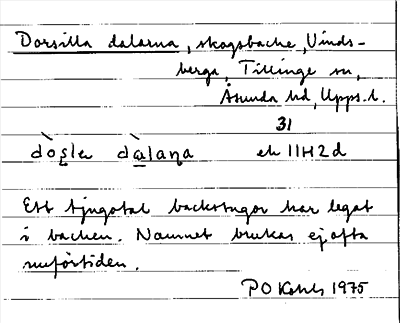 Dorsilla dalarna, skogsbacke, Vinds-
berga, Tillinge sn,
Åsunda hd, Upps. l.
31
dòsle dàlaṇa ek 11H2d
Ett tjugotal backstugor har legat
i backen. Namnet brukas ej ofta
nuförtiden.
PO Kohls 1975